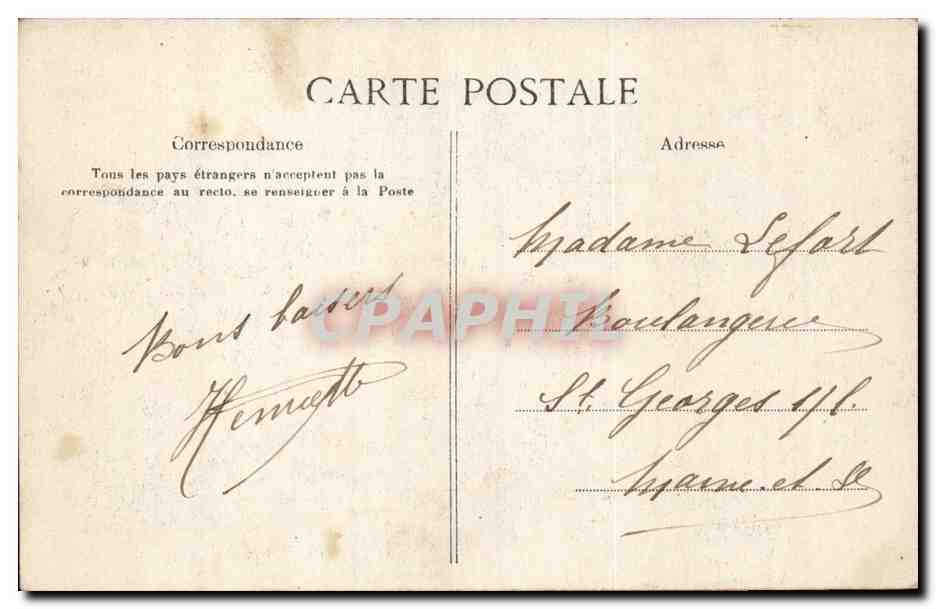 CARTE POSTALE
Correspondance
Tous les pays étrangers n'acceptent pas la
correspondance au recto, se renseigner à la Poste
Bons baisers
Henriette
Adresse
Madame Lefort
Boulangerie
St. Georges s/l.
Maine-et-
CPAPHIL